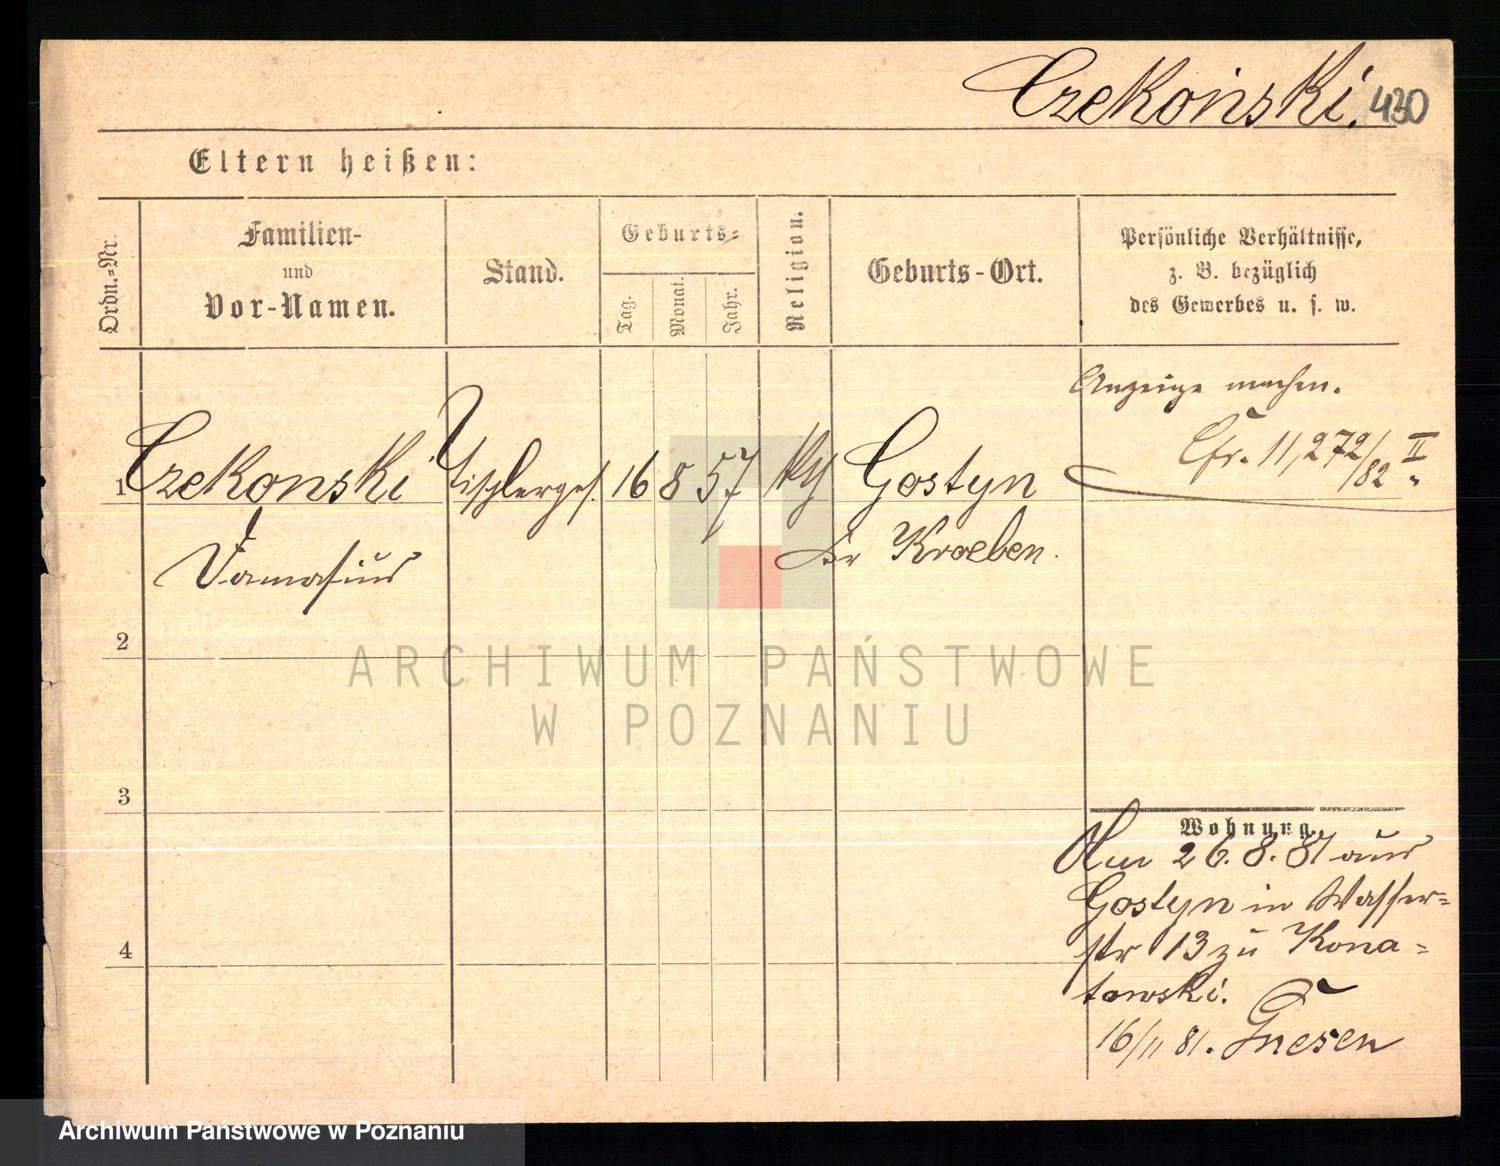 Czekoński. 430
Eltern heißen:
Ordn.-Nr.
Familien-
und
Vor-Namen.
Stand.
Geburts-
Tag.
Monat.
Jahr.
Religion.
Geburts-Ort.
Persönliche Verhältnisse,
z. B. bezüglich
des Gewerbes u. s. w.
Anzeige machen.
Cfr. 11,272/82 II
1 Czekonski Tischlerges. 16 8 57 Gostyn
Damasius Kr Kroeben.
2
3
4
Wohnung.
Am 26.8.81 aus
Gostyn in Wasser-
str 13 zu Kona-
towski.
16/11 81. Gnesen
ARCHIWUM PAŃSTWOWE
W POZNANIU
Archiwum Państwowe w Poznaniu